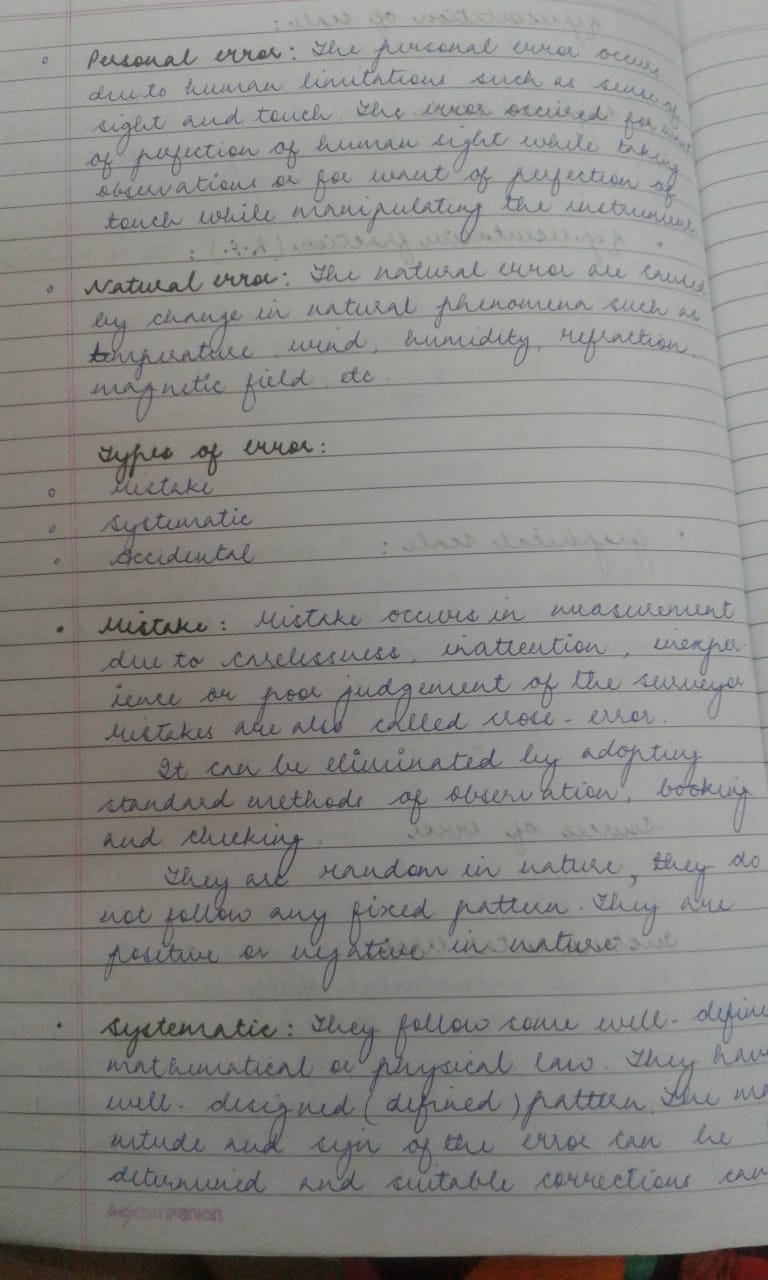 Personal error: The personal error occurs
due to human limitations such as sense of
sight and touch. The error occured for want
of perfection of human sight while taking
observations or for want of perfection of
touch while manipulating the instrument.
Natural error: The natural error are caused
by change in natural phenomena such as
temperature, wind, humidity, refraction,
magnetic field etc.
Types of error:
Mistake
Systematic
Accidental
Mistake: Mistake occurs in measurement
due to carelessness, inattention, inexper-
ience or poor judgement of the surveyor
Mistakes are also called crose-error.
It can be eliminated by adopting
standard methods of observation, booking
and checking.
They are random in nature, they do
not follow any fixed pattern. They are
positive or negative in nature.
Systematic: They follow some well-define
mathematical or physical law. They have
well-designed (defined) pattern. The mag
nitude and sign of the error can be
determined and suitable corrections can